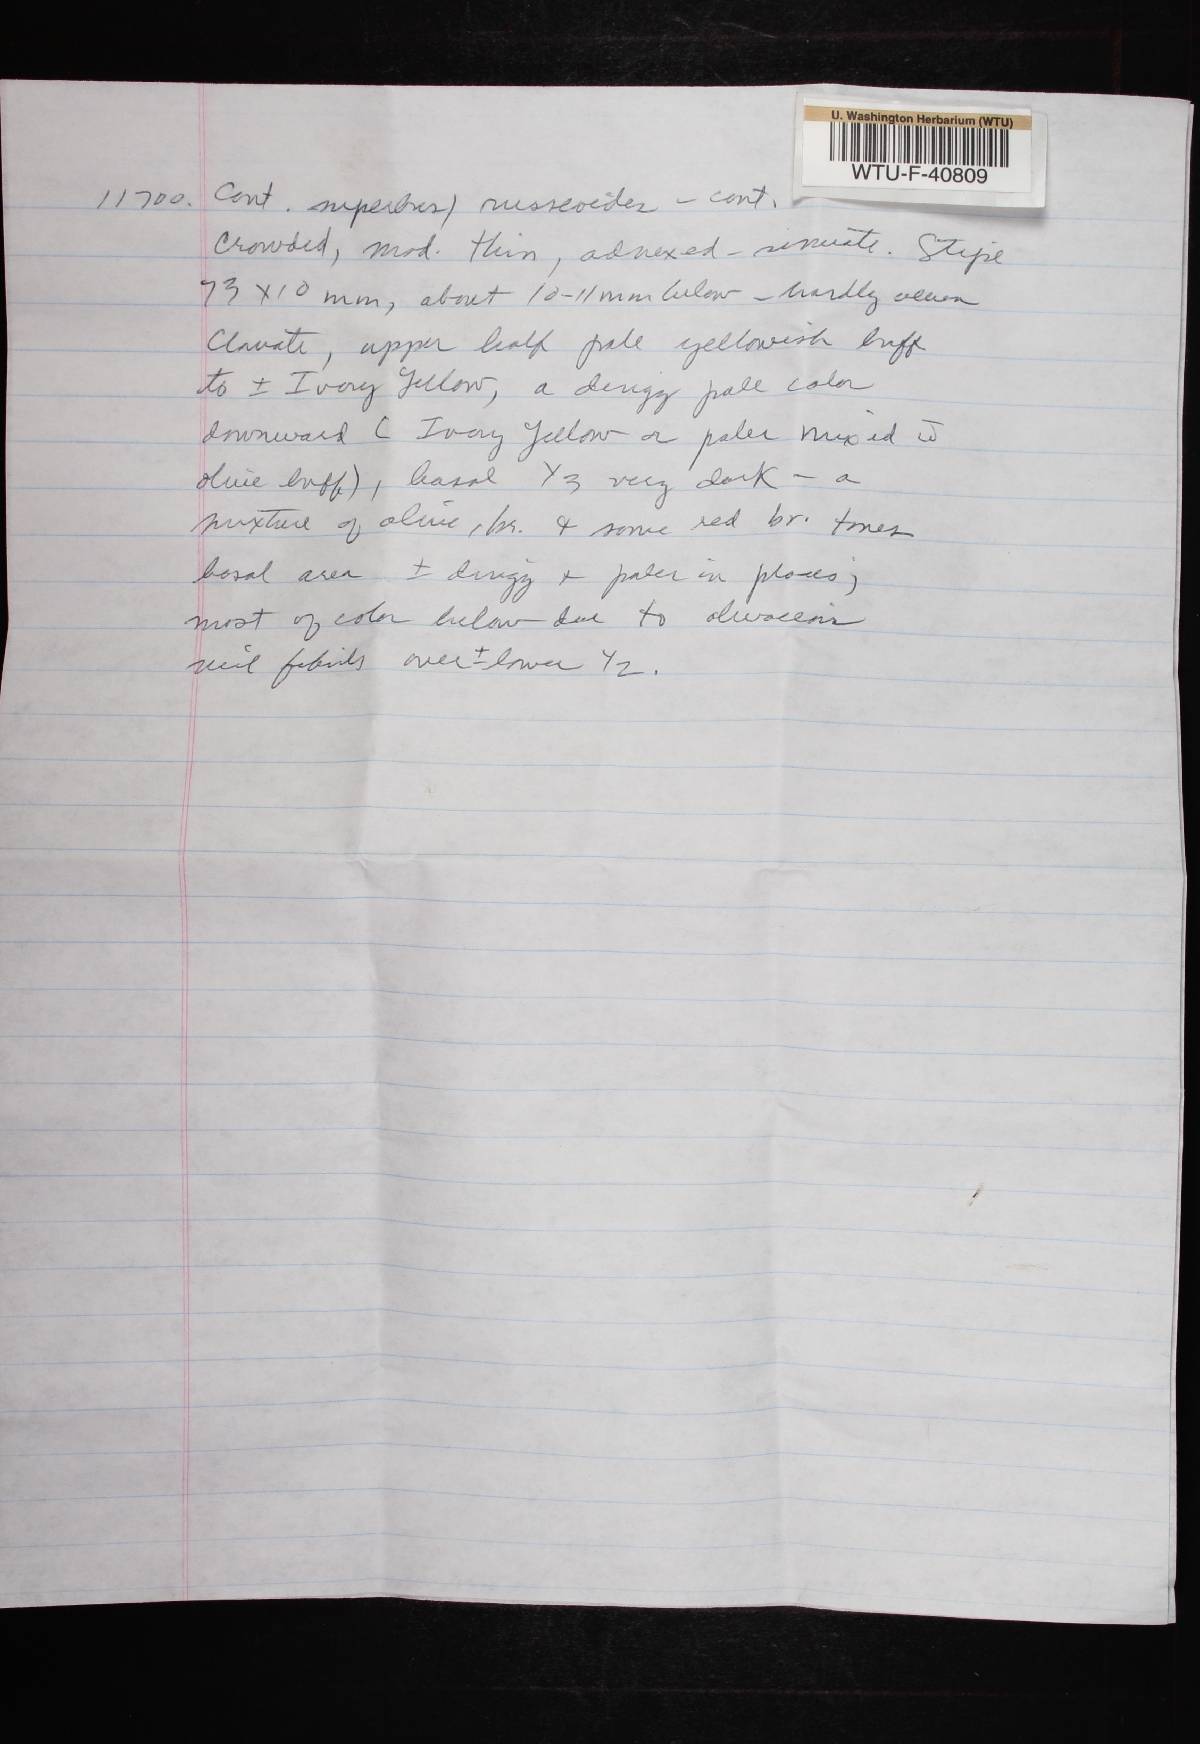 U. Washington Herbarium (WTU)
WTU-F-40809
11700. Cort. superbus) russeoides - cont.
Crowded, mod. thin, adnexed-sinuate. Stipe
73 x 10 mm, about 10-11 mm below - hardly even
Clavate, upper half pale yellowish buff
to ± Ivory Yellow, a dingy pale color
downward ( Ivory Yellow or paler mixed w̄
olive buff), basal 1/3 very dark - a
mixture of olive, br. & some red br. tones
basal area ± dingy & paler in places;
most of color below due to olivaceous
veil fibrils over ± lower 1/2.